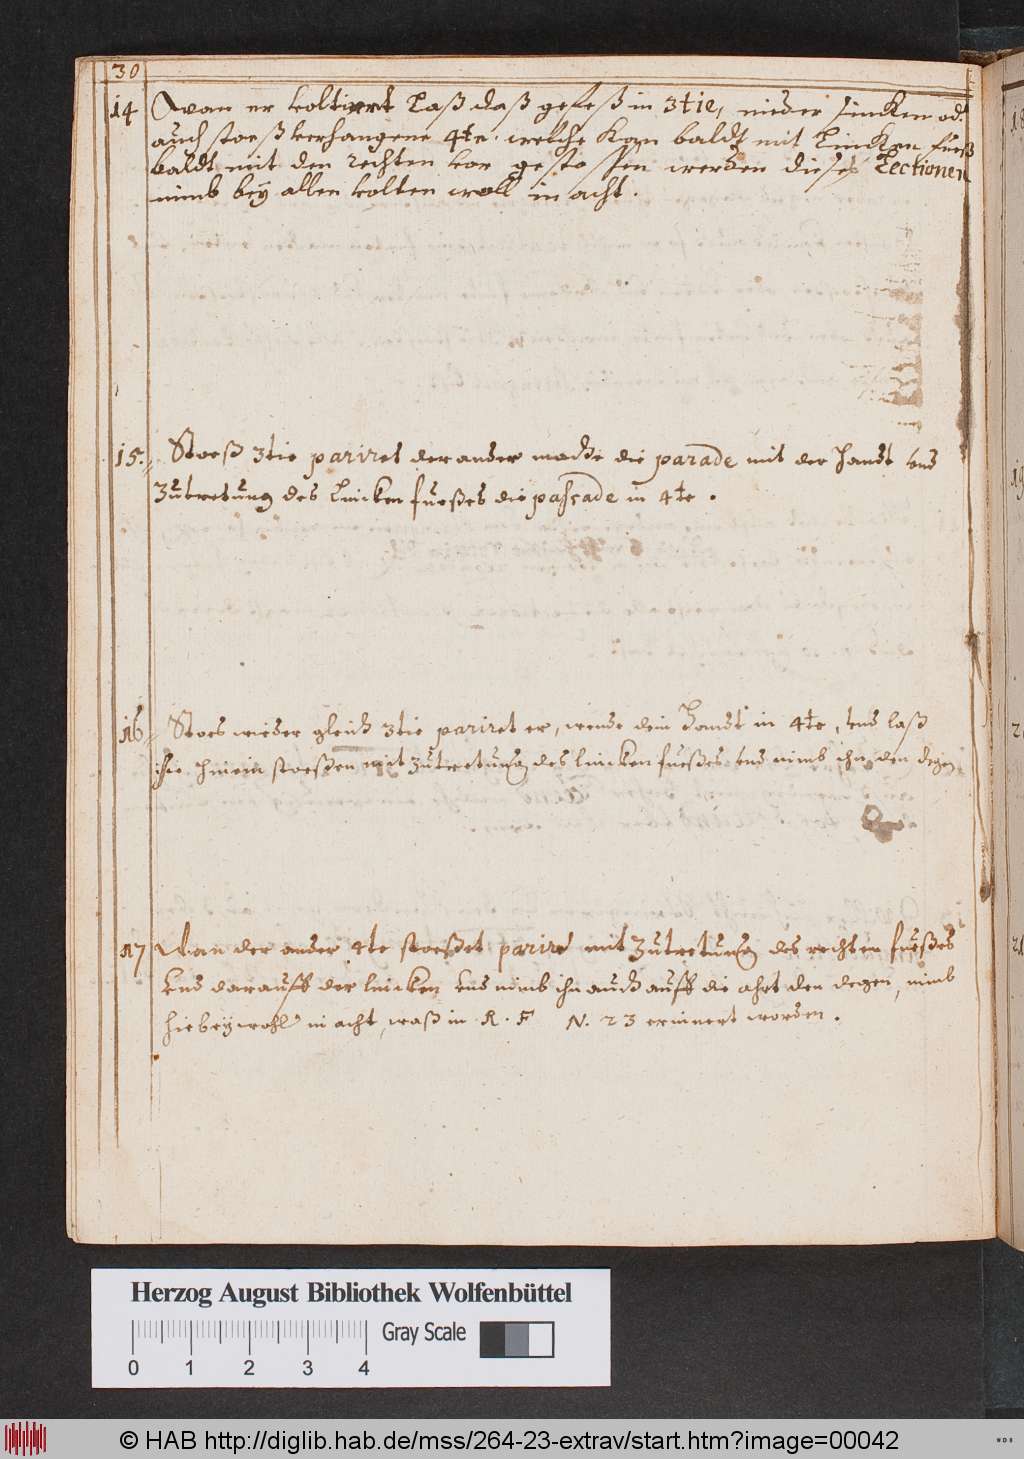 30
14 Wan er voltiert Laß daß gefeß in 3tie, nieder sincken od.
auch stoeß verhangene 4te. welche Kan baldt mit Lincken fueß
baldt mit den rechten vor gestossen werden dieses Lectionen
nimb beÿ allen volten woll in acht.
15. Stoeß 3tie pariret der ander mache die parade mit der handt vnd
Zutretung des Lincken fueßes die passade in 4te.
16 Stoes wieder gleich 3tie pariret er, wende dein Handt in 4te, vnd laß
sie hinein stoeßen mit Zutretung des lincken fueßes vnd nimb ihn den degen
17 Wan der ander 4te stoeßet parire mit Zutretung des rechten fueßes
vnd darauff der lincken vnd nimb ihn auch auff die ahrt den degen, nimb
hiebeÿ wohl in acht, waß in R. F N. 23 erinnert worden.
Herzog August Bibliothek Wolfenbüttel
Gray Scale
0 1 2 3 4
© HAB http://diglib.hab.de/mss/264-23-extrav/start.htm?image=00042